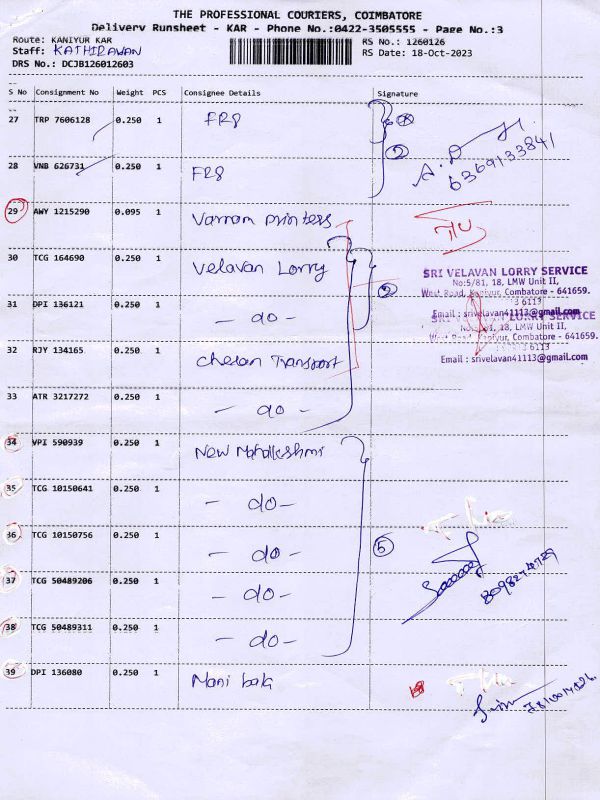 THE PROFESSIONAL COURIERS, COIMBATORE
Delivery Runsheet - KAR - Phone No.:0422-3505555 - Page No.:3
Route: KANIYUR KAR
RS No.: 1260126
Staff: KATHIRAVAN
RS Date: 18-Oct-2023
DRS No.: DCJB126012603
S No Consignment No Weight PCS Consignee Details Signature
27 TRP 7606128 0.250 1 FR8
28 VNB 626731 0.250 1 FR8
2
6369133841
29 AWY 1215290 0.095 1 Varnam printess
30 TCG 164690 0.250 1 Velavan Lorry
2
SRI VELAVAN LORRY SERVICE
No:5/81, 18, LMW Unit II,
West Road, Kaniyur, Combatore - 641659.
6113
Email : srivelavan41113@gmail.com
31 DPI 136121 0.250 1 - do -
SRI VELAVAN LORRY SERVICE
18, LMW Unit II,
West Road, Kaniyur, Combatore - 641659.
6113
Email : srivelavan41113@gmail.com
32 RJY 134165 0.250 1 Chetan Transport
33 ATR 3217272 0.250 1 - do -
34 VPI 590939 0.250 1 New Mahalkshmi
35 TCG 10150641 0.250 1 - do -
36 TCG 10150756 0.250 1 - do -
5
37 TCG 50489206 0.250 1 - do -
38 TCG 50489311 0.250 1 - do -
39 DPI 136080 0.250 1 Mani bala